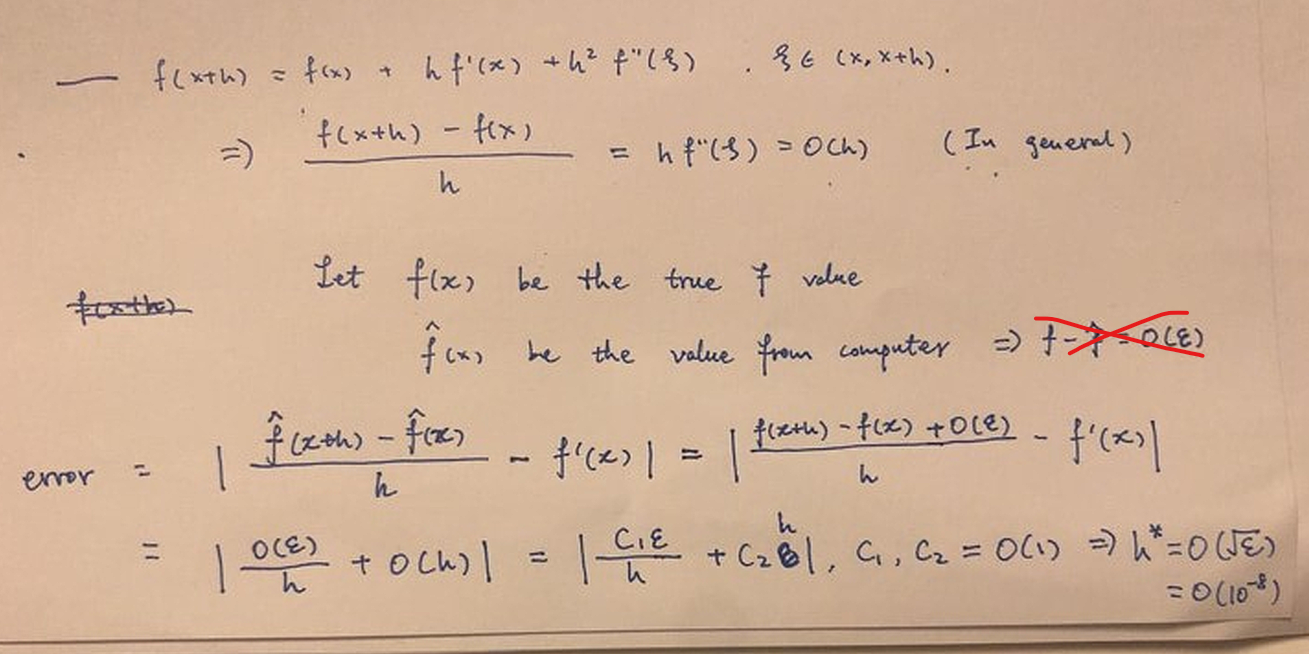 — f(x+h) = f(x) + h f'(x) + h² f''(ξ) . ξ ∈ (x, x+h).
⇒) \frac{f(x+h) - f(x)}{h} = h f''(ξ) = O(h) (In general)
Let f(x) be the true f value
~~f(x+h)~~
f̂(x) be the value from computer ⇒ ~~f - f̂ = O(ε)~~
error = | \frac{f̂(x+h) - f̂(x)}{h} - f'(x) | = | \frac{f(x+h) - f(x) + O(ε)}{h} - f'(x) |
= | \frac{O(ε)}{h} + O(h) | = | \frac{C₁ε}{h} + C₂ h |, C₁, C₂ = O(1) ⇒ h* = O(√ε)
= O(10⁻⁸)